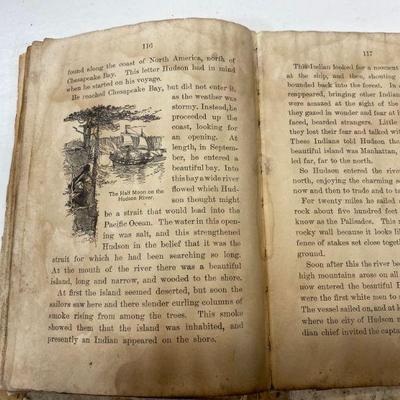 116
found along the coast of North America, north of
Chesapeake Bay. This letter Hudson had in mind
when he started on his voyage.
He reached Chesapeake Bay, but did not enter it,
as the weather was
stormy. Instead, he
proceeded up the
coast, looking for
an opening. At
length, in Septem-
ber, he entered a
beautiful bay. Into
this bay a wide river
flowed which Hud-
son thought might
The Half Moon on the
Hudson River.
be a strait that would lead into the
Pacific Ocean. The water in this open-
ing was salt, and this strengthened
Hudson in the belief that it was the
strait for which he had been searching so long.
At the mouth of the river there was a beautiful
island, long and narrow, and wooded to the shore.
At first the island seemed deserted, but soon the
sailors saw here and there slender curling columns of
smoke rising from among the trees. This smoke
showed them that the island was inhabited, and
presently an Indian appeared on the shore.
117
This Indian looked for a moment
at the ship, and then, shouting
bounded back into the forest. In a
reappeared, bringing other Indian
were amazed at the sight of the
they gazed in wonder and fear at
faced, bearded strangers. Little
they lost their fear and talked with
These Indians told Hudson the
beautiful island was Manhattan,
led far, far to the north.
So Hudson entered the river
north, enjoying the charming sc
now and then to trade and to
For twenty miles he sailed
rock about five hundred feet
know as the Palisades. This
rocky wall because it looked
fence of stakes set close togeth
ground.
Soon after this the river be
high mountains arose on all
now entered the beautiful
were the first white men to s
The vessel sailed on, and at
where the city of Hudson n
dian chief invited the capta